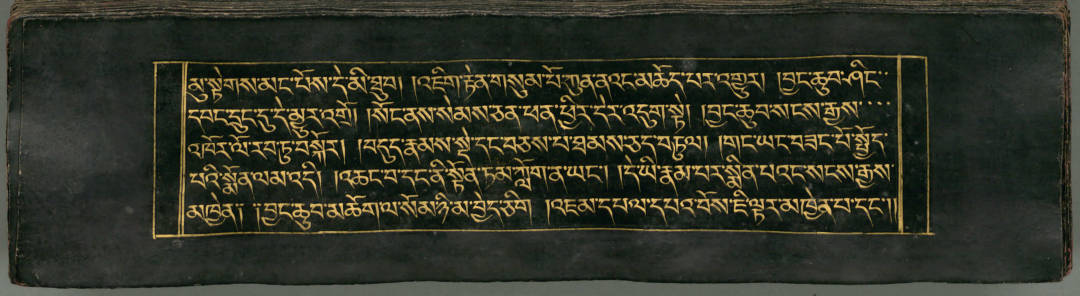 མུ་སྟེགས་མང་པོས་དེ་མི་ཐུབ། །འཇིག་རྟེན་གསུམ་པོ་ཀུན་ནའང་མཆོད་པར་འགྱུར། །བྱང་ཆུབ་ཤིང་
དབང་དྲུང་དུ་དེ་མྱུར་འགྲོ། །སོང་ནས་སེམས་ཅན་ཕན་ཕྱིར་དེར་འདུག་སྟེ། །བྱང་ཆུབ་སངས་རྒྱས་
འཁོར་ལོ་རབ་ཏུ་བསྐོར། །བདུད་རྣམས་སྡེ་དང་བཅས་པ་ཐམས་ཅད་བཏུལ། །གང་ཡང་བཟང་པོ་སྤྱོད་
པའི་སྨོན་ལམ་འདི། །འཆང་བ་དང་ནི་སྟོན་ཏམ་ཀློག་ན་ཡང་། །དེ་ཡི་རྣམ་པར་སྨིན་པའང་སངས་རྒྱས་
མཁྱེན། །བྱང་ཆུབ་མཆོག་ལ་སོམ་ཉི་མ་བྱེད་ཅིག །འཇམ་དཔལ་དཔའ་བོས་ཇི་ལྟར་མཁྱེན་པ་དང་།།